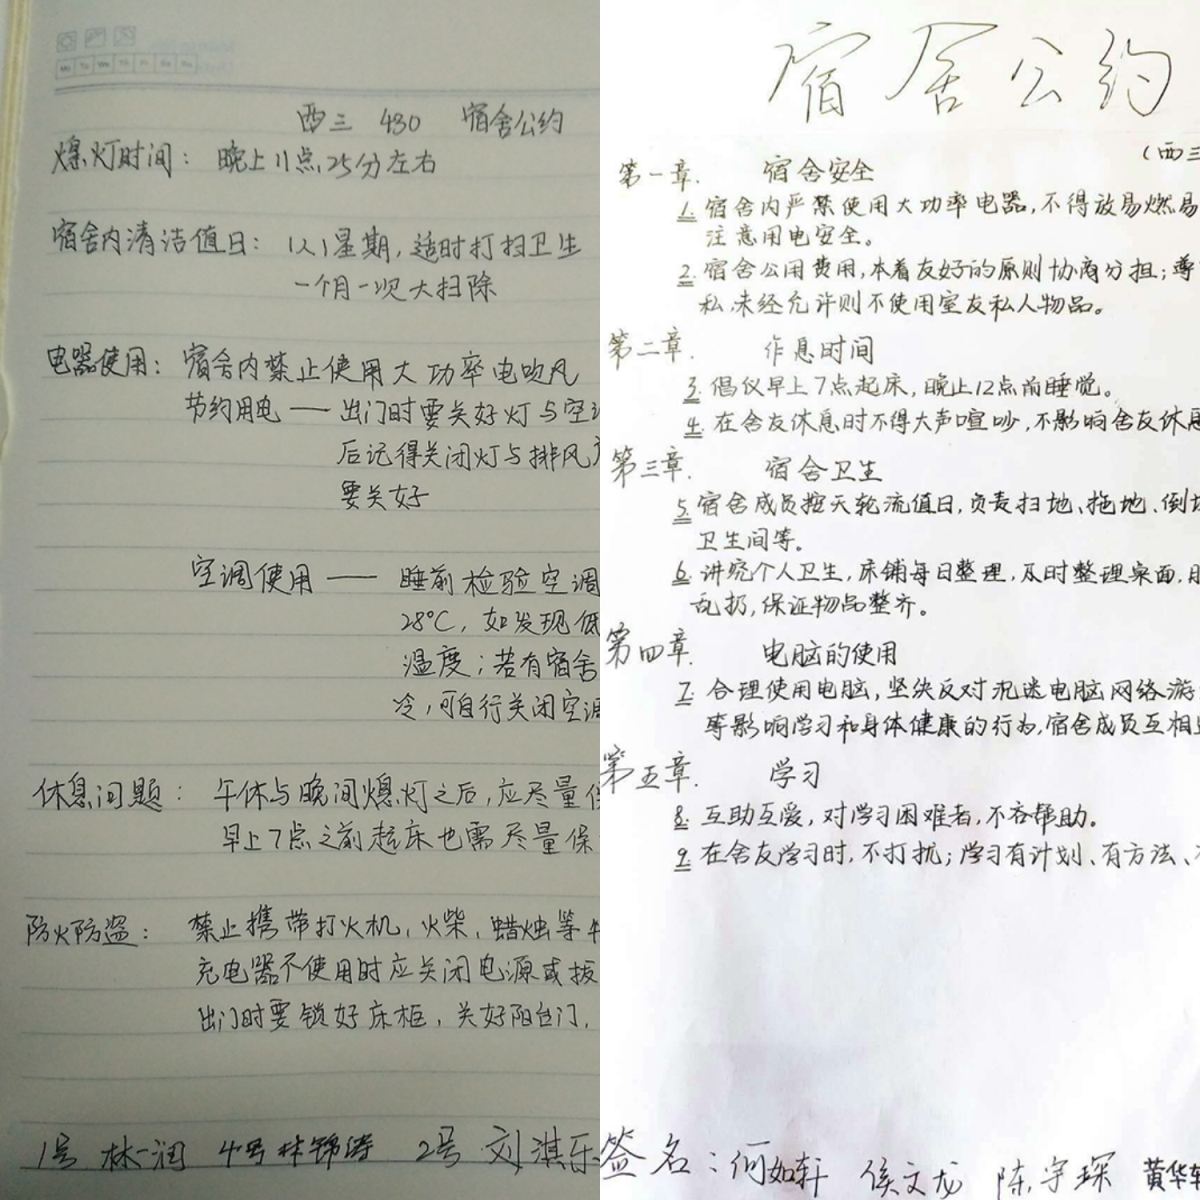 西三 430 宿舍公约
熄灯时间：晚上11点25分左右
宿舍内清洁值日：1人1星期，适时打扫卫生
一个月一次大扫除
电器使用：宿舍内禁止使用大功率电吹风
节约用电——出门时要关好灯与空
后记得关闭灯与排风
要关好
空调使用——睡前检验空调
28℃，如发现低
温度；若有宿舍
冷，可自行关闭空调
休息问题：午休与晚间熄灯之后，应尽量
早上7点之前起床也需尽量保
防火防盗：禁止携带打火机，火柴，蜡烛等
充电器不使用时应关闭电源或拔
出门时要锁好床柜，关好阳台门，
1号 林一润 4号 林锦涛 2号 刘淇乐
宿舍公约
（西三
第一章. 宿舍安全
1. 宿舍内严禁使用大功率电器，不得放易燃易
注意用电安全。
2. 宿舍公用费用，本着友好的原则协商分担；尊
私，未经允许则不使用室友私人物品。
第二章. 作息时间
3. 倡仪早上7点起床，晚上12点前睡觉。
4. 在舍友休息时不得大声喧吵，不影响舍友休息
第三章. 宿舍卫生
5. 宿舍成员按天轮流值日，负责扫地、拖地、倒垃
卫生间等。
6. 讲究个人卫生，床铺每日整理，及时整理桌面，
乱扔，保证物品整齐。
第四章. 电脑的使用
7. 合理使用电脑，坚决反对沉迷电脑网络游
等影响学习和身体健康的行为，宿舍成员互相
第五章. 学习
8. 互助互爱，对学习困难者，不吝帮助。
9. 在舍友学习时，不打扰；学习有计划、有方法、
签名：何如轩 侯文龙 陈宇琛 黄华